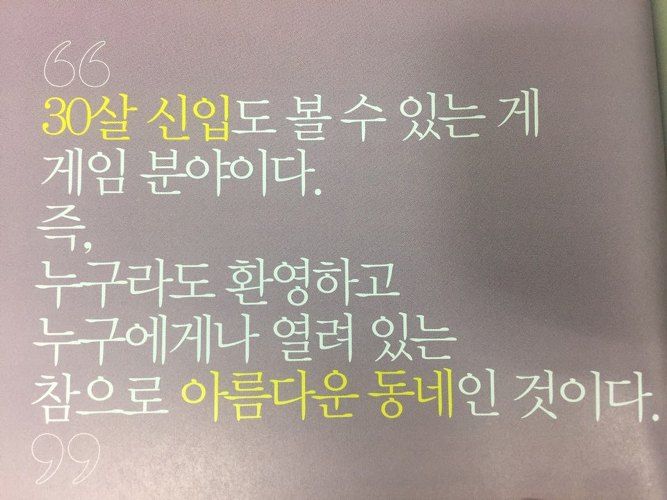 “
30살 신입도 볼 수 있는 게
게임 분야이다.
즉,
누구라도 환영하고
누구에게나 열려 있는
참으로 아름다운 동네인 것이다.
”